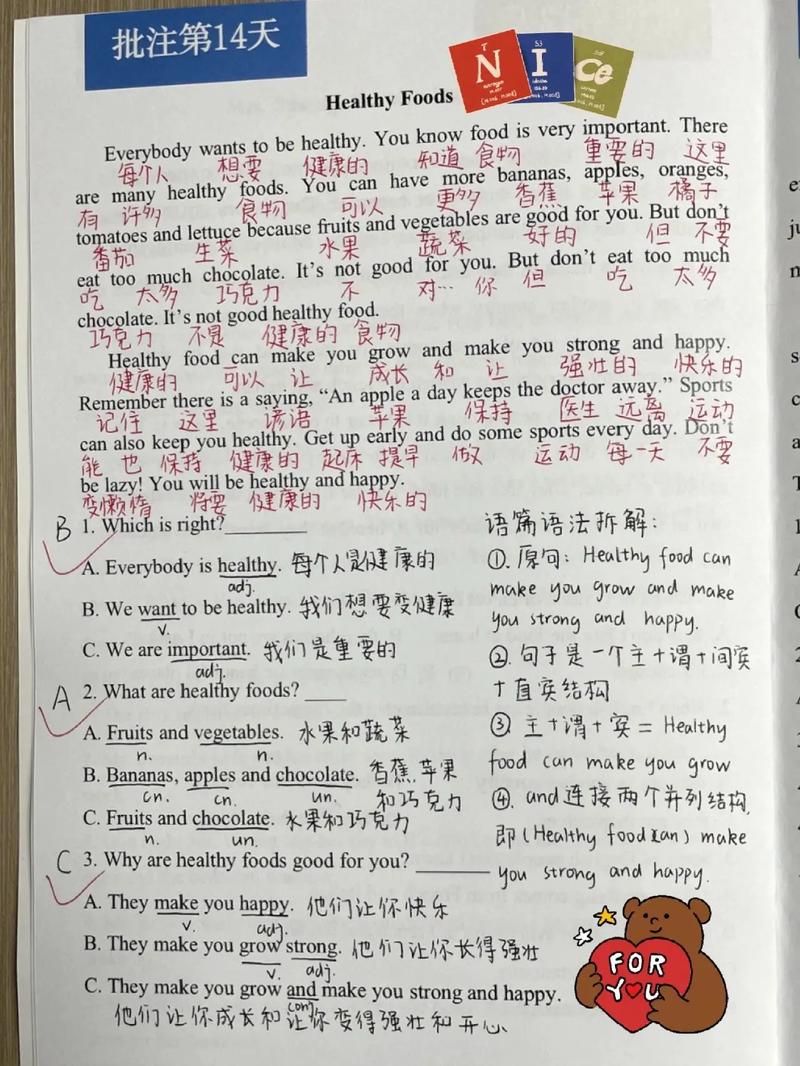 批注第14天
N I Ce
Healthy Foods
Everybody wants to be healthy. You know food is very important. There
每个人 想要 健康的 知道 食物 重要的 这里
are many healthy foods. You can have more bananas, apples, oranges,
有 许多 食物 可以 更多 香蕉 苹果 橘子
tomatoes and lettuce because fruits and vegetables are good for you. But don't
番茄 生菜 水果 蔬菜 好的 但 不要
eat too much chocolate. It's not good for you. But don't eat too much
吃 太多 巧克力 不 对… 你 但 吃 太多
chocolate. It's not good healthy food.
巧克力 不是 健康的 食物
Healthy food can make you grow and make you strong and happy.
健康的 可以 让 成长 和 让 强壮的 快乐的
Remember there is a saying, “An apple a day keeps the doctor away.” Sports
记住 这里 谚语 苹果 保持 医生 远离 运动
can also keep you healthy. Get up early and do some sports every day. Don't
能 也 保持 健康的 起床 提早 做 运动 每一天 不要
be lazy! You will be healthy and happy.
变懒惰 将要 健康的 快乐的
B 1. Which is right?________
A. Everybody is healthy. 每个人是健康的
adj.
B. We want to be healthy. 我们想要变健康
v.
C. We are important. 我们是重要的
adj.
A 2. What are healthy foods? ____
A. Fruits and vegetables. 水果和蔬菜
n. n.
B. Bananas, apples and chocolate. 香蕉,苹果
cn. cn. un. 和巧克力
C. Fruits and chocolate. 水果和巧克力
n. un.
C 3. Why are healthy foods good for you? ________
A. They make you happy. 他们让你快乐
v. adj.
B. They make you grow strong. 他们让你长得强壮
v. adj.
C. They make you grow and make you strong and happy.
conj
他们让你成长和让你变得强壮和开心
语篇语法拆解:
①. 原句: Healthy food can
make you grow and make
you strong and happy.
②. 句子是一个主+谓+间宾
+直宾结构
③. 主+谓+宾 = Healthy
food can make you grow
④. and连接两个并列结构,
即(Healthy food)(can) make
you strong and happy.
FOR
YOU